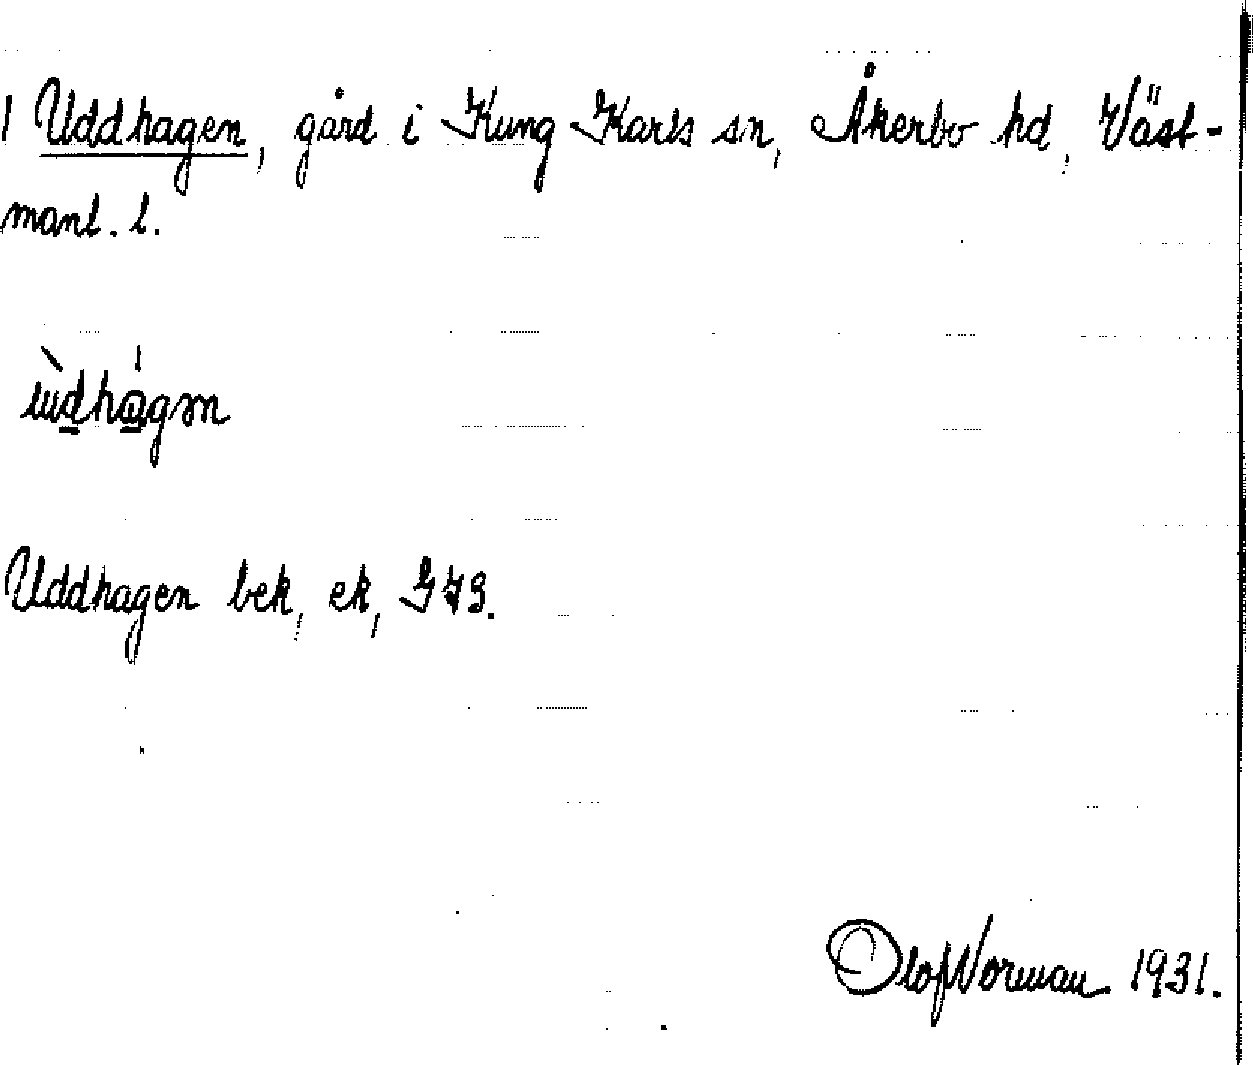 1 Uddhagen, gård i Kung Karls sn, Åkerbo hd, Väst-
manl. l.
ùdhágən
Uddhagen bek, ek, GJB.
Olof Norman 1931.